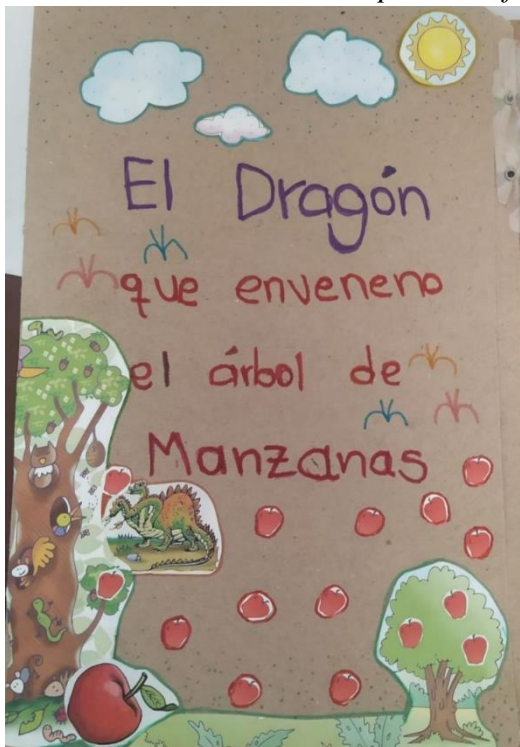 El Dragón
que enveneno
el árbol de
Manzanas